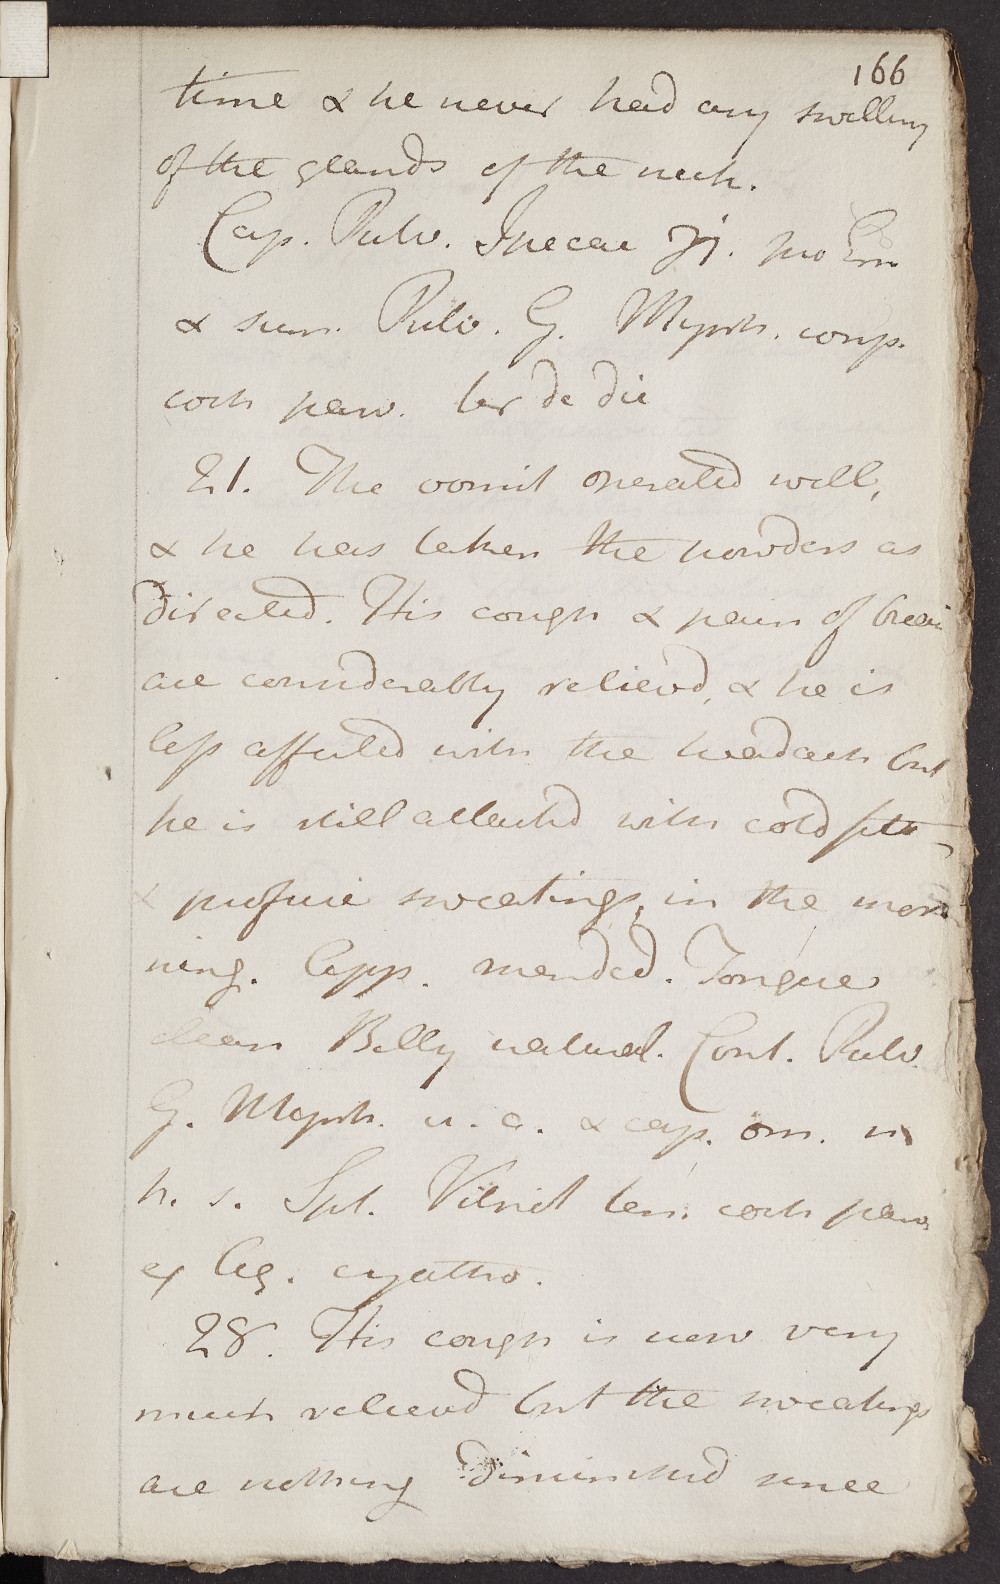 166
time & he never had any swelling
of the glands of the neck.
Cap. Pulv. Ipecac ʒj. pro Em
& sum. Pulv. G. Myrrh. comp.
coch parv. ter de die
21. The vomit operated well,
& he has taken the powders as
directed. His cough & pain of breast
are considerably relievd, & he is
less affected with the headach but
he is still attacked with cold fits
& profuse sweatings, in the mor
ning. App. mended. Tongue
clean Belly natural. Cont. Pulv.
G. Myrrh. u. a. & cap. om. n
h. s. Spt. Vitriol ten. coch parv
ex Aq. cyatho.
28. His cough is now very
much relievd but the sweatings
are nothing diminishd since